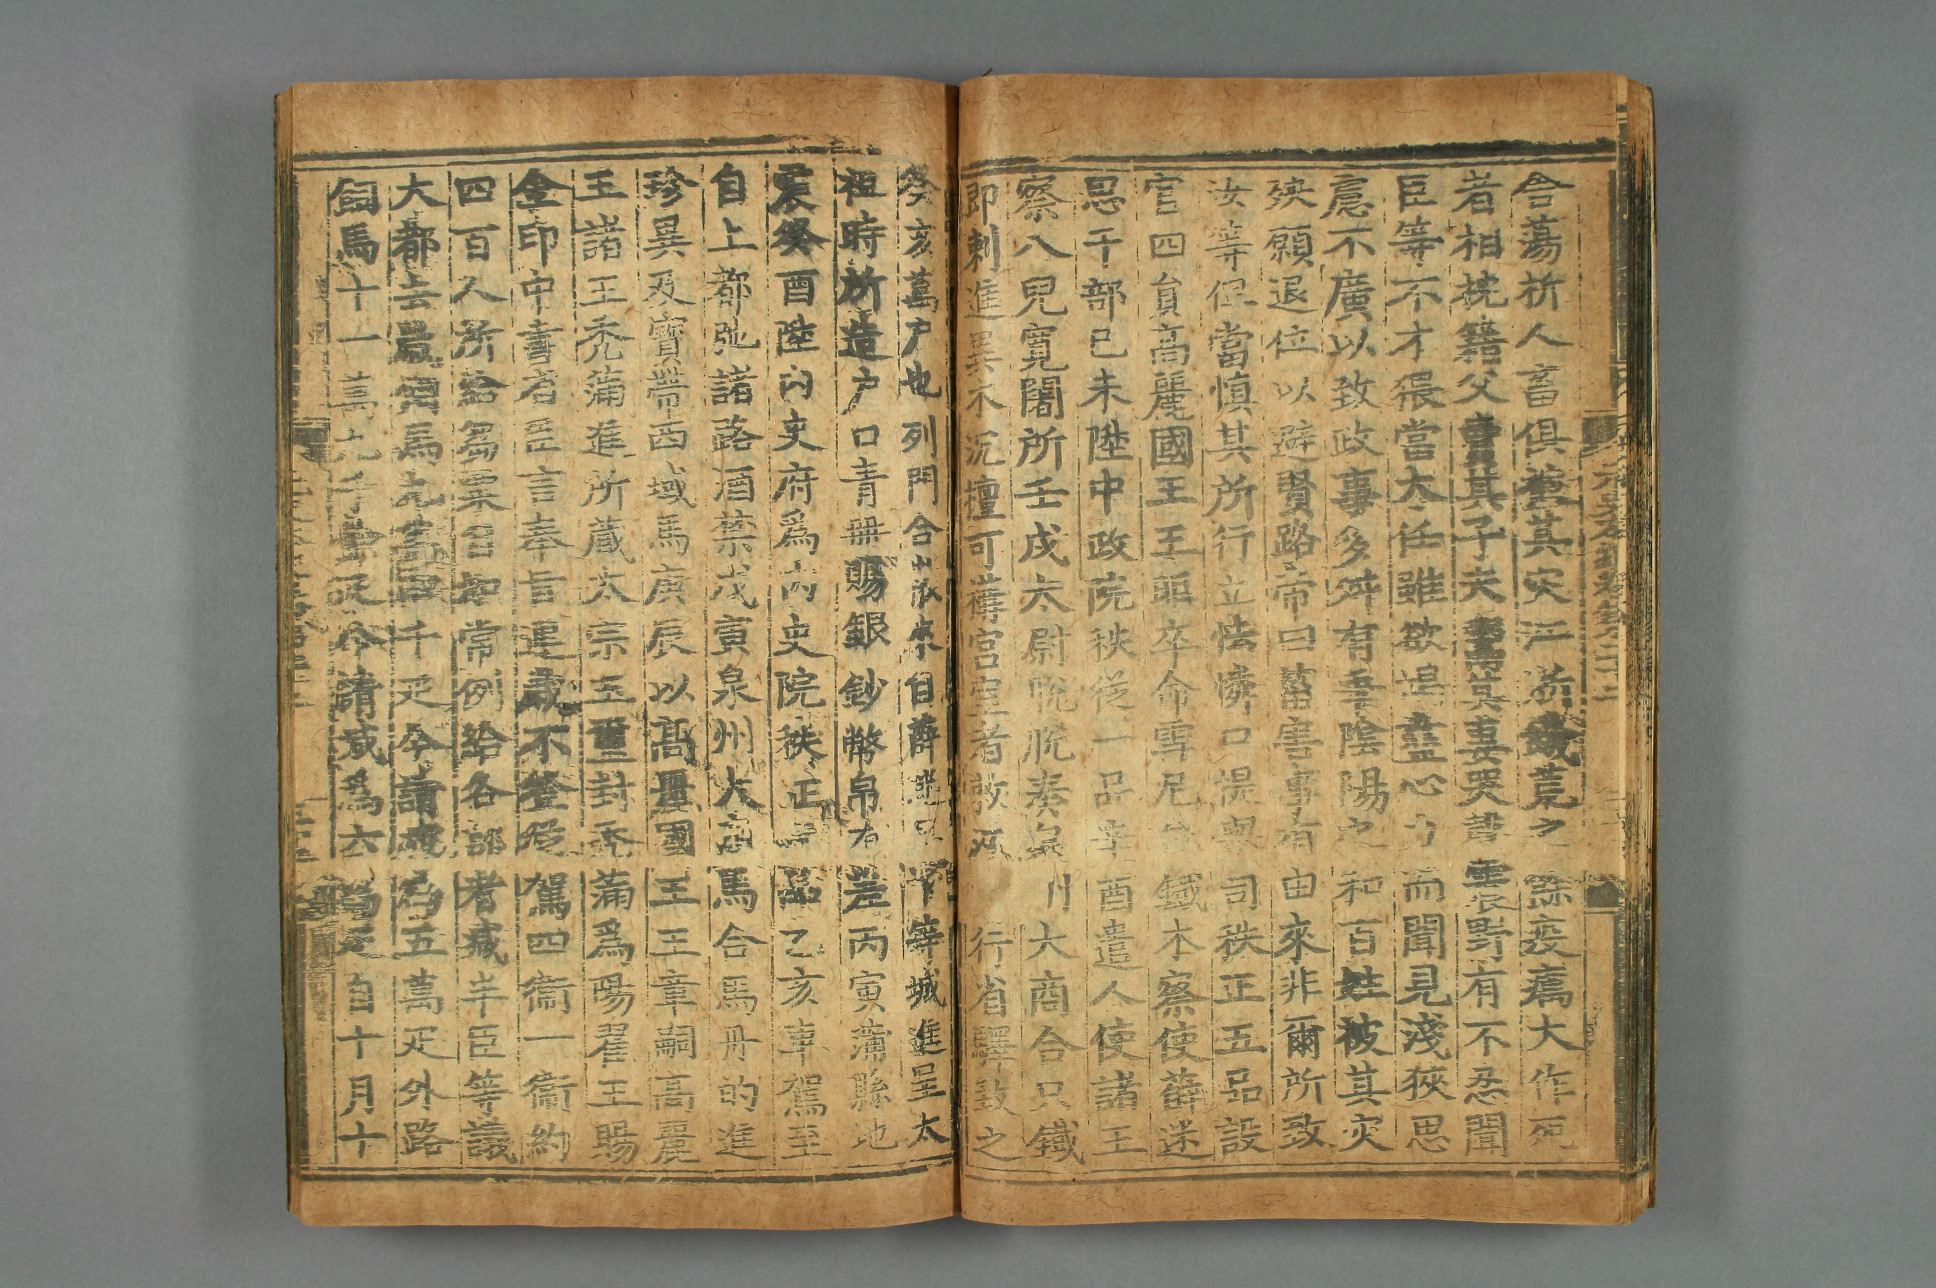 合蕩析人畜俱被其灾江浙饑荒之餘疫癘大作死
者相枕籍父賣其子夫鬻其妻哭聲震野有不忍聞
臣等不才猥當大任雖欲竭盡心力而聞見淺狹思
慮不廣以致政事多舛有乖陰陽之和百姓被其灾
殃願退位以避賢路帝曰菑害事有由來非爾所致
汝等但當慎其所行立怯憐口提舉司秩正五品設
官四員高麗國王王昛卒命雪尼台鐵木察使薛迷
思干部己未陞中政院秩從一品辛酉遣人使諸王
察八兒寬闍所壬戌太尉脫脫奏泉州大商合只鐵
即剌進異木沉檀可構宮室者敕江浙行省驛致之
癸亥萬户也列門合散來自薛迷思干等城進呈太
祖時所造户口青冊賜銀鈔幣帛有差丙寅蒲縣地
震癸酉陞內史府爲內史院秩正二品乙亥車駕至
自上都弛諸路酒禁戊寅泉州大商馬合馬丹的進
珍異及寶帶西域馬庚辰以高麗國王王章嗣高麗
王諸王禿滿進所藏太宗玉璽封禿滿爲陽翟王賜
金印中書省臣言奉旨連歲不登從駕四衞一衞約
四百人所給芻粟自如常例給各部者減半臣等議
大都去歲飼馬九萬四千疋今請減爲五萬疋外路
飼馬十一萬九千餘疋今請減爲六萬疋自十月十